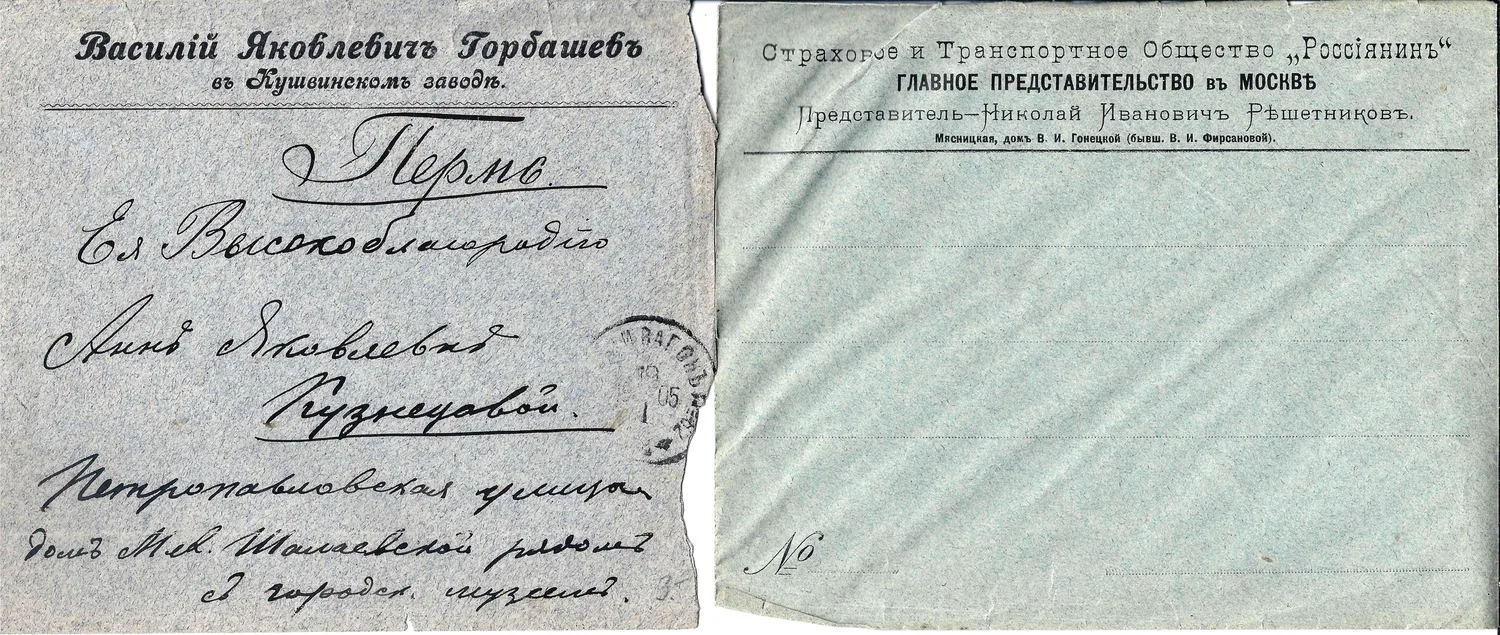 Василій Яковлевичъ Горбашевъ
въ Кушвинскомъ заводѣ.
Пермь.
Ея Высокоблагородію
Аннѣ Яковлевнѣ
Кузнецовой.
Петропавловская улица
домъ Шалаевской рядомъ
съ городск. музеемъ.
ВАГОНЪ
05
I
3
Страховое и Транспортное Общество „Россіянинъ“
ГЛАВНОЕ ПРЕДСТАВИТЕЛЬСТВО въ МОСКВѢ
Представитель—Николай Ивановичъ Рѣшетниковъ.
Мясницкая, домъ В. И. Гонецкой (бывш. В. И. Фирсановой).
№